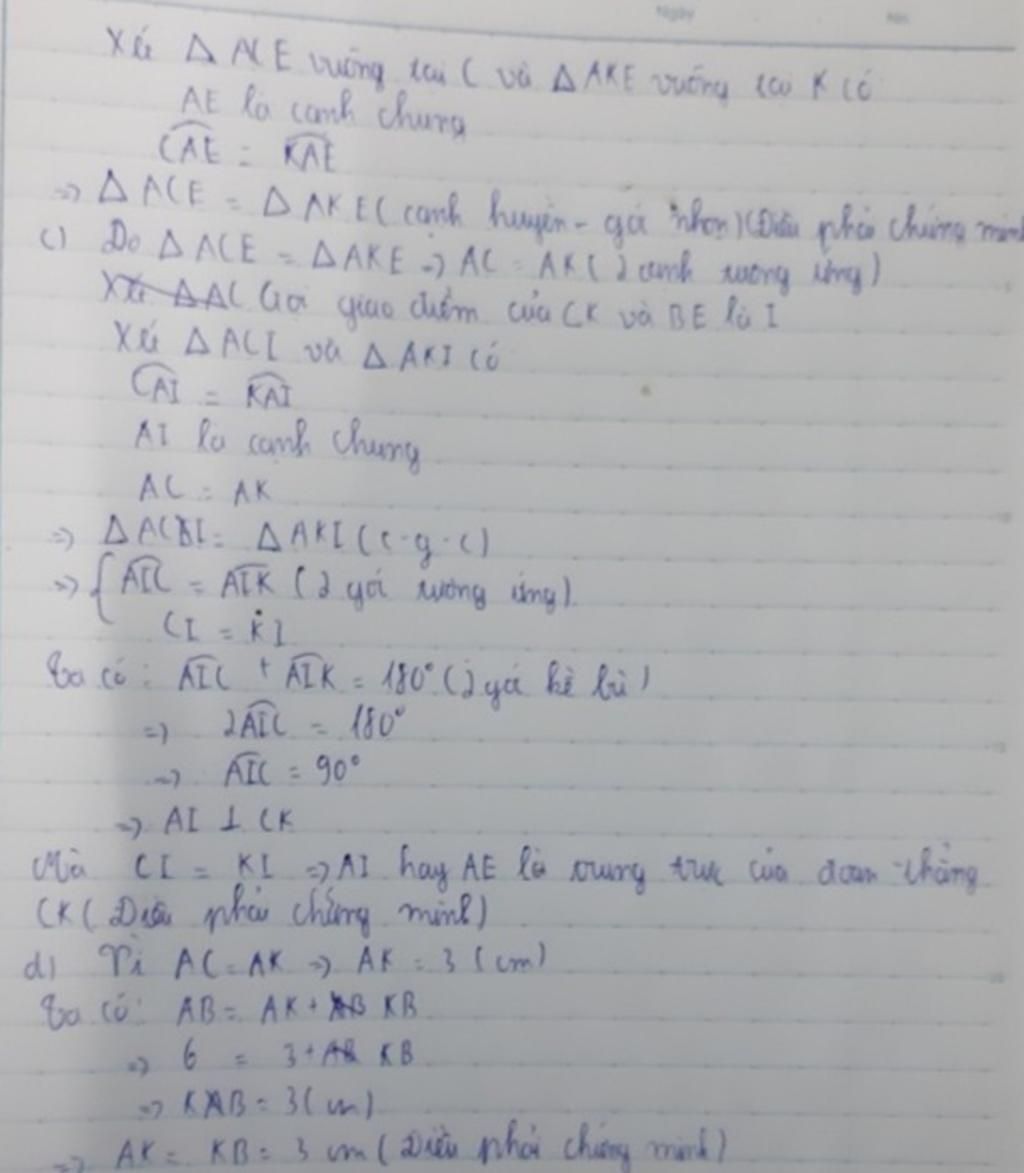 Ngày
Xét Δ ACE vuông tại C và Δ AKE vuông tại K có
AE là cạnh chung
CAE = KAE
=> Δ ACE = Δ AKE ( cạnh huyền - góc nhọn ) (Điều phải chứng minh
c) Do Δ ACE = Δ AKE => AC = AK ( 2 cạnh tương ứng )
Xét ΔAC Gọi giao điểm của CK và BE là I
Xét Δ ACI và Δ AKI có
CAI = KAI
AI là cạnh chung
AC = AK
=> Δ ACI = Δ AKI ( c - g - c )
=> { AIC = AIK ( 2 góc tương ứng )
CI = KI
Ta có : AIC + AIK = 180° ( 2 góc kề bù )
=> 2AIC = 180°
=> AIC = 90°
=> AI ⊥ CK
Mà CI = KI => AI hay AE là trung trực của đoạn thẳng
CK ( Điều phải chứng minh )
d) Vì AC = AK => AK = 3 ( cm )
Ta có : AB = AK + KB
=> 6 = 3 + KB
=> KB = 3 ( cm )
=> AK = KB = 3 cm ( Điều phải chứng minh )